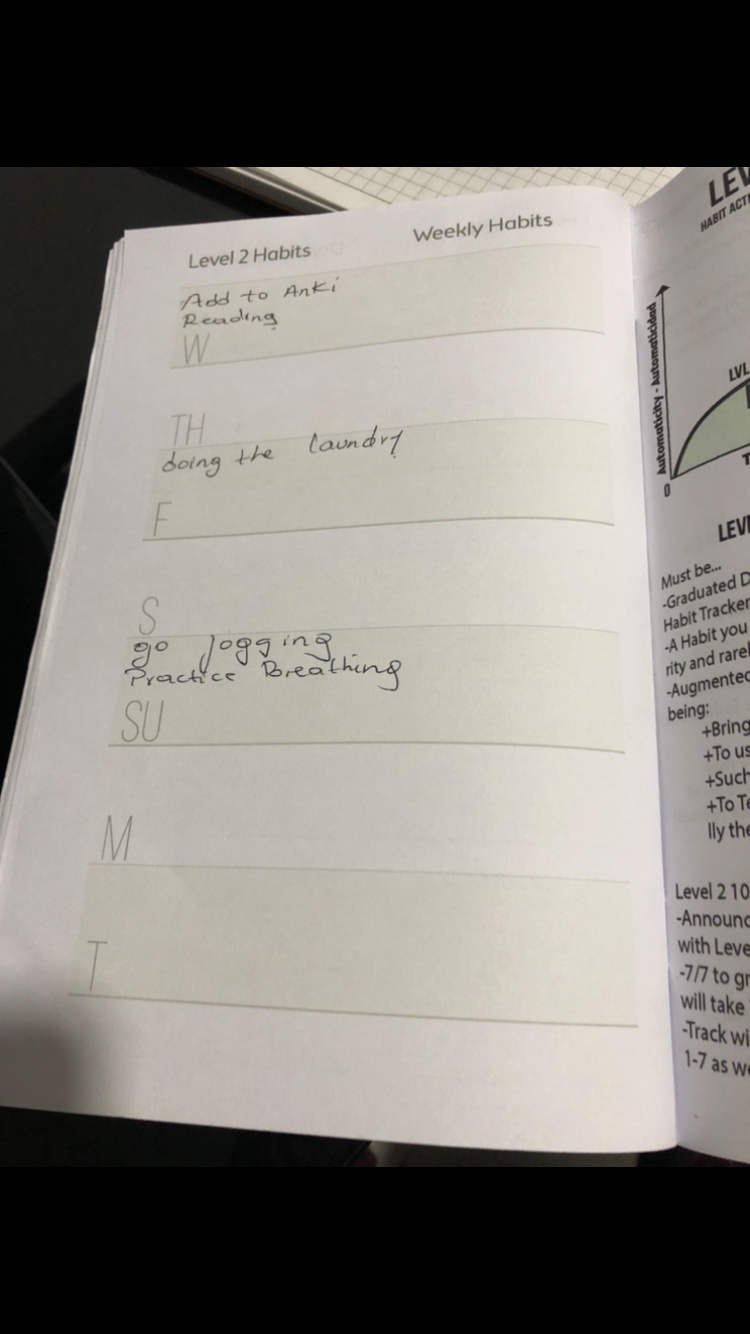 Level 2 Habits
Weekly Habits
Add to Anki
Reading
W
TH
doing the laundry
F
S
go jogging
Practice Breathing
SU
M
T
LEV
HABIT ACTI
Automaticity - Automaticidad
LVL
T
0
LEVE
Must be...
-Graduated D
Habit Tracker
-A Habit you
rity and rarel
-Augmented
being:
+Bring
+To us
+Such
+To Te
lly the
Level 2 10
-Announc
with Leve
-7/7 to gr
will take
-Track wi
1-7 as we